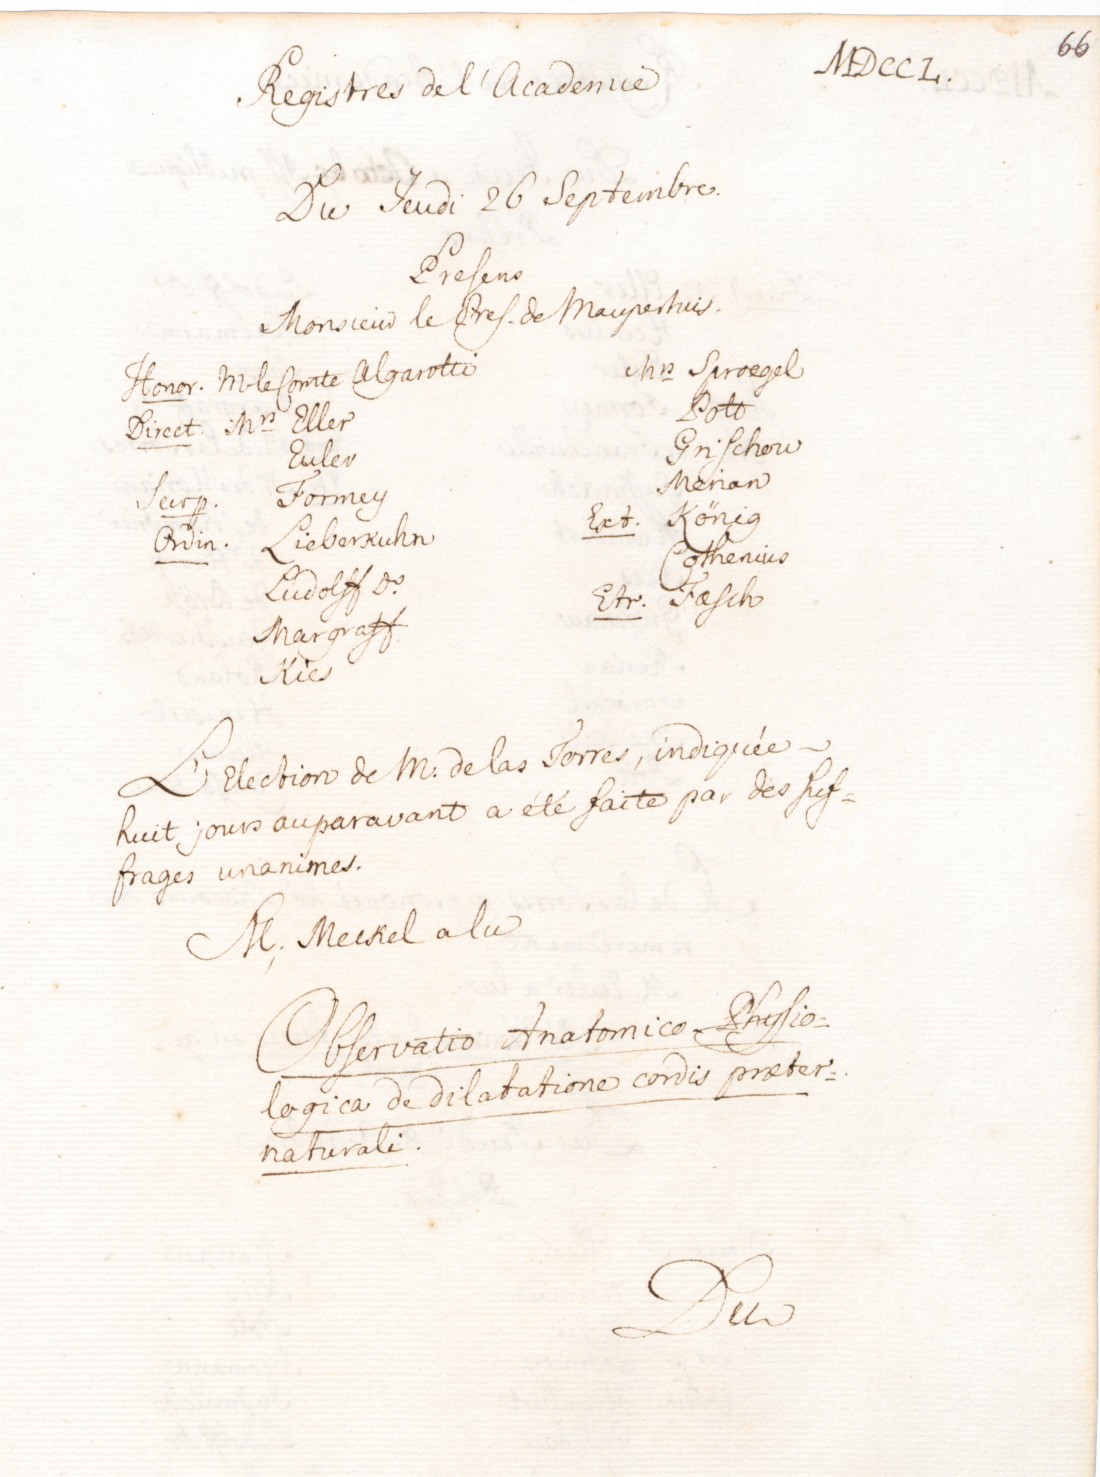 66
Registres de l'Academie
MDCCL.
Du Jeudi 26 Septembre.
Presens
Monsieur le Pres. de Maupertuis.
Honor. M. le Comte Algarotti
Direct. Mrs Eller
Euler
Secrp. Formey
Ordin. Lieberkuhn
Ludolff Dr
Margraff
Kies
Mrs Sproegel
Pott
Grischow
Merian
Ext. König
Cothenius
Etr. Fæsch
L'Election de M. de las Torres, indiquée
huit jours auparavant a été faite par des suf=
frages unanimes.
M. Meckel a lu
Observatio Anatomico-Physio=
logica de dilatatione cordis præter=
naturali.
Du